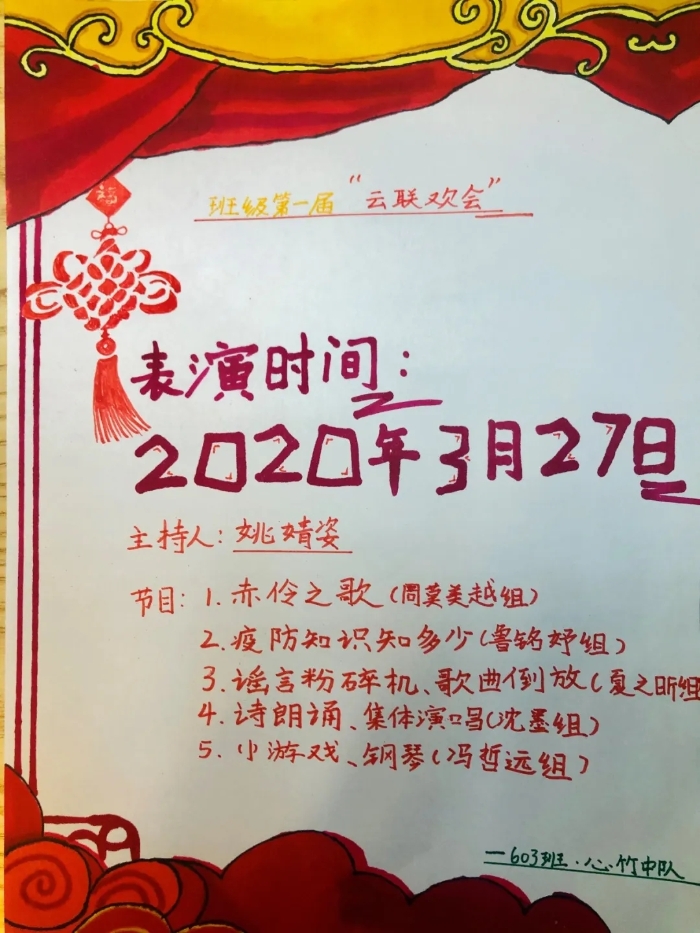 福
班级第一届“云联欢会”
表演时间:
2020年3月27日
主持人:姚婧姿
节目:1.赤伶之歌(周莫美越组)
2.疫防知识知多少(鲁铭妤组)
3.谣言粉碎机、歌曲倒放(夏之昕组
4.诗朗诵、集体演唱(沈墨组)
5.小游戏、钢琴(冯哲远组)
—603班·心竹中队